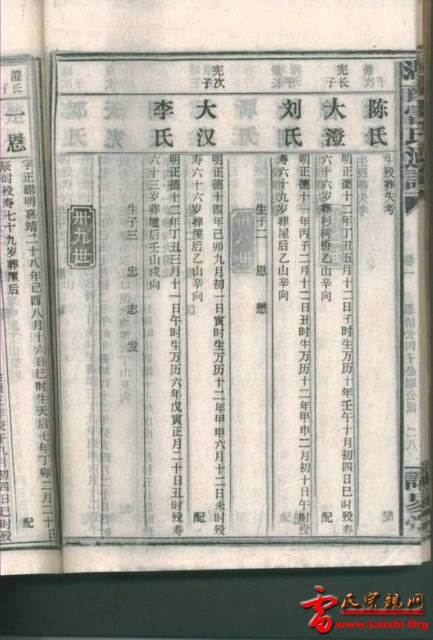 陈氏
生殁葬失考
宪长子
大澄
明正德十二年丁丑五月十二日子时生万历十年壬午十月初四日巳时殁寿
六十六岁葬杉树桥乙山辛向
配
刘氏
明正德十一年丙子二月十二日丑时生万历十二年甲申二月初十日午时殁
寿六十九岁葬屋后乙山辛向
生子二 恩 懋
宪次子
大汉
明正德十四年己卯九月初一日寅时生万历十二年甲申六月十二日未时殁
寿六十六岁葬屋后乙山辛向
配
李氏
明正德十二年丁丑三月十一日午时生万历六年戊寅正月二十日丑时殁寿
六十三岁葬屋后壬山戌向
生子三 忠 志 发
卅九世
澄长子
恩
字正聪明嘉靖二十八年己酉八月十六日巳时生天启七年丁卯二月二十日
辰时殁寿七十九岁葬屋后
配
雷氏宗亲网
www.Leishi.Org